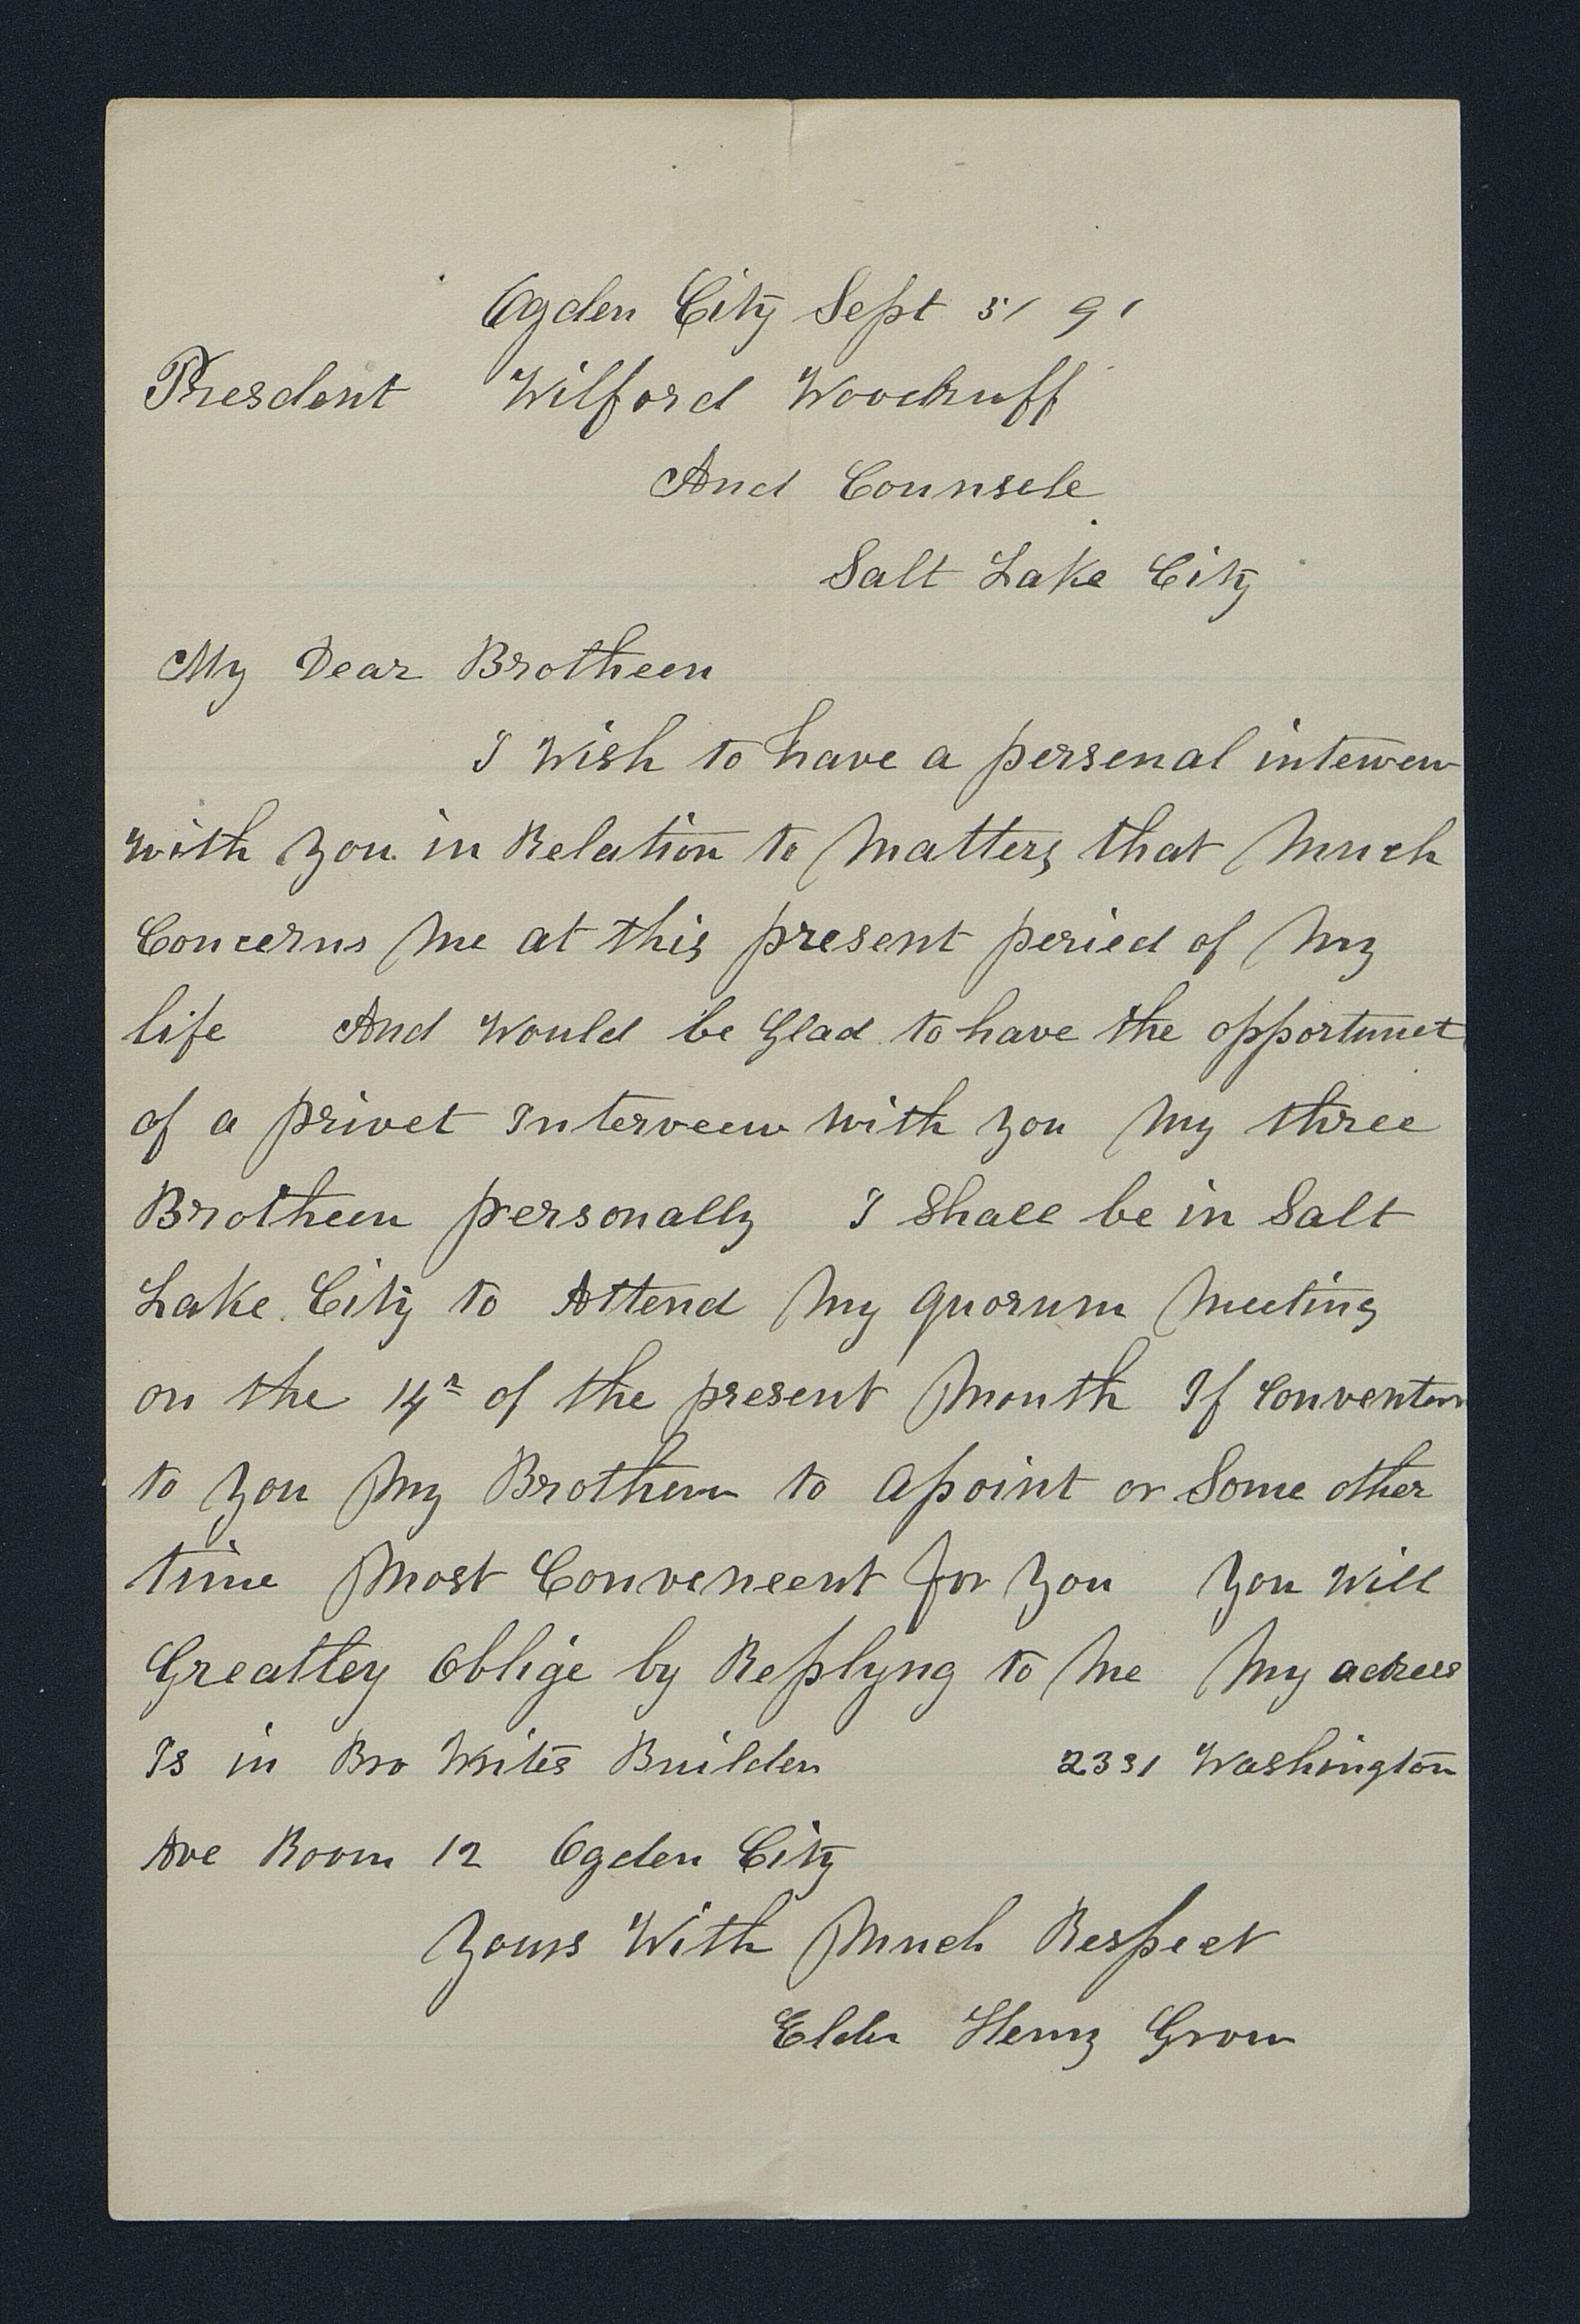 Ogden City Sept 5/ 91
Presdent Wilford Woodruff
And Counsele
Salt Lake City
My Dear Brotheen
I Wish to have a persenal
with you in Relation to Matters that Much
Concerns Me at this present peried of My
life And Would be Glad to have the opportunet
of a privet Interveew with you My three
Brotheen personally I Shall be in Salt
Lake City to Attend My quorum Meeting
on the 14th of the present Month If
to you My Brothern to Apoint or Some other
time Most Conveneent for you you Will
Greatley Oblige by Replyng to Me My adress
Is in Bro Writes Builden 2331 Washington
Ave Room 12 Ogden City
Yours With Much Respect
Elder Henry Grow